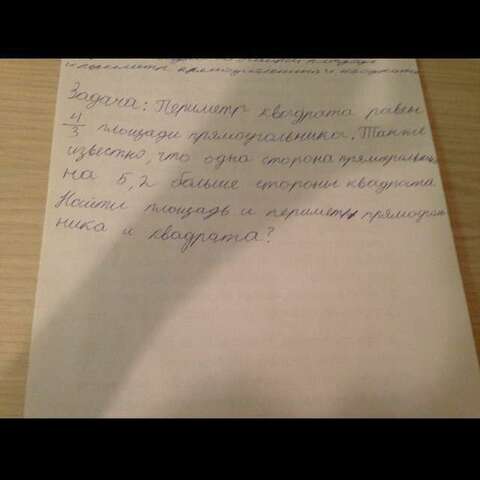 периметр прямоугольника и квадрата
Задача: Периметр квадрата равен
4/3 площади прямоугольника. Также
известно, что одна сторона прямоугольн
на 5,2 больше стороны квадрата
Найти площадь и периметр прямоуголь
ника и квадрата?